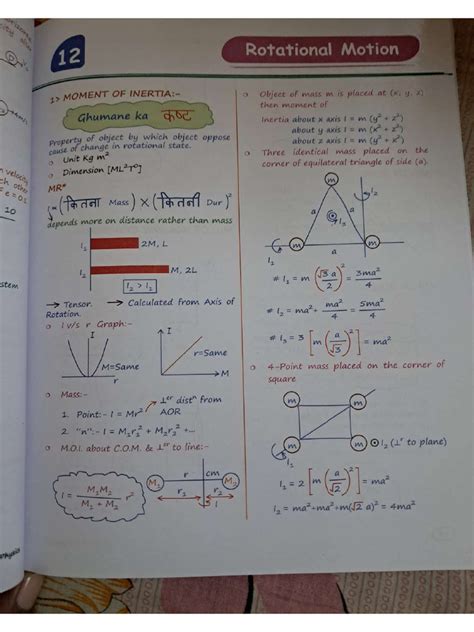 12
Rotational Motion
1> MOMENT OF INERTIA:-
Ghumane ka कष्ट
Property of object by which object oppose
cause of change in rotational state.
○ Unit Kg m²
○ Dimension [ML²T⁰]
MR²
(कितना Mass) × (कितनी Dur)²
depends more on distance rather than mass
I₁ 2M, L
I₂ M, 2L
I₂ > I₁
→ Tensor. → Calculated from Axis of
Rotation.
○ I v/s r Graph:-
I
M=Same
r
I
r=Same
M
○ Mass:-
⊥er distⁿ from
AOR
1. Point:- I = Mr²
2. "n":- I = M₁r₁² + M₂r₂² +...
○ M.O.I. about C.O.M. & ⊥er to line:-
I = M₁M₂ / (M₁ + M₂) r²
M₁ r cm M₂
r₁ r₂
I
○ Object of mass m is placed at (x, y, z)
then moment of
Inertia about x axis I = m (y² + z²)
about y axis I = m (x² + z²)
○ Three identical mass placed on the
corner of equilateral triangle of side (a).
m
I₂
a a
I₃
m a m
I₁
# I₁ = m (√3 a / 2)² = 3ma² / 4
# I₂ = ma² + ma² / 4 = 5ma² / 4
# I₃ = 3 [m (a / √3)²] = ma²
○ 4-Point mass placed on the corner of
square
m m
m m I₂ (⊥r to plane)
I₁
I₁ = 2 [m (a / √2)²] = ma²
I₂ = ma²+ma²+m(√2 a)² = 4ma²